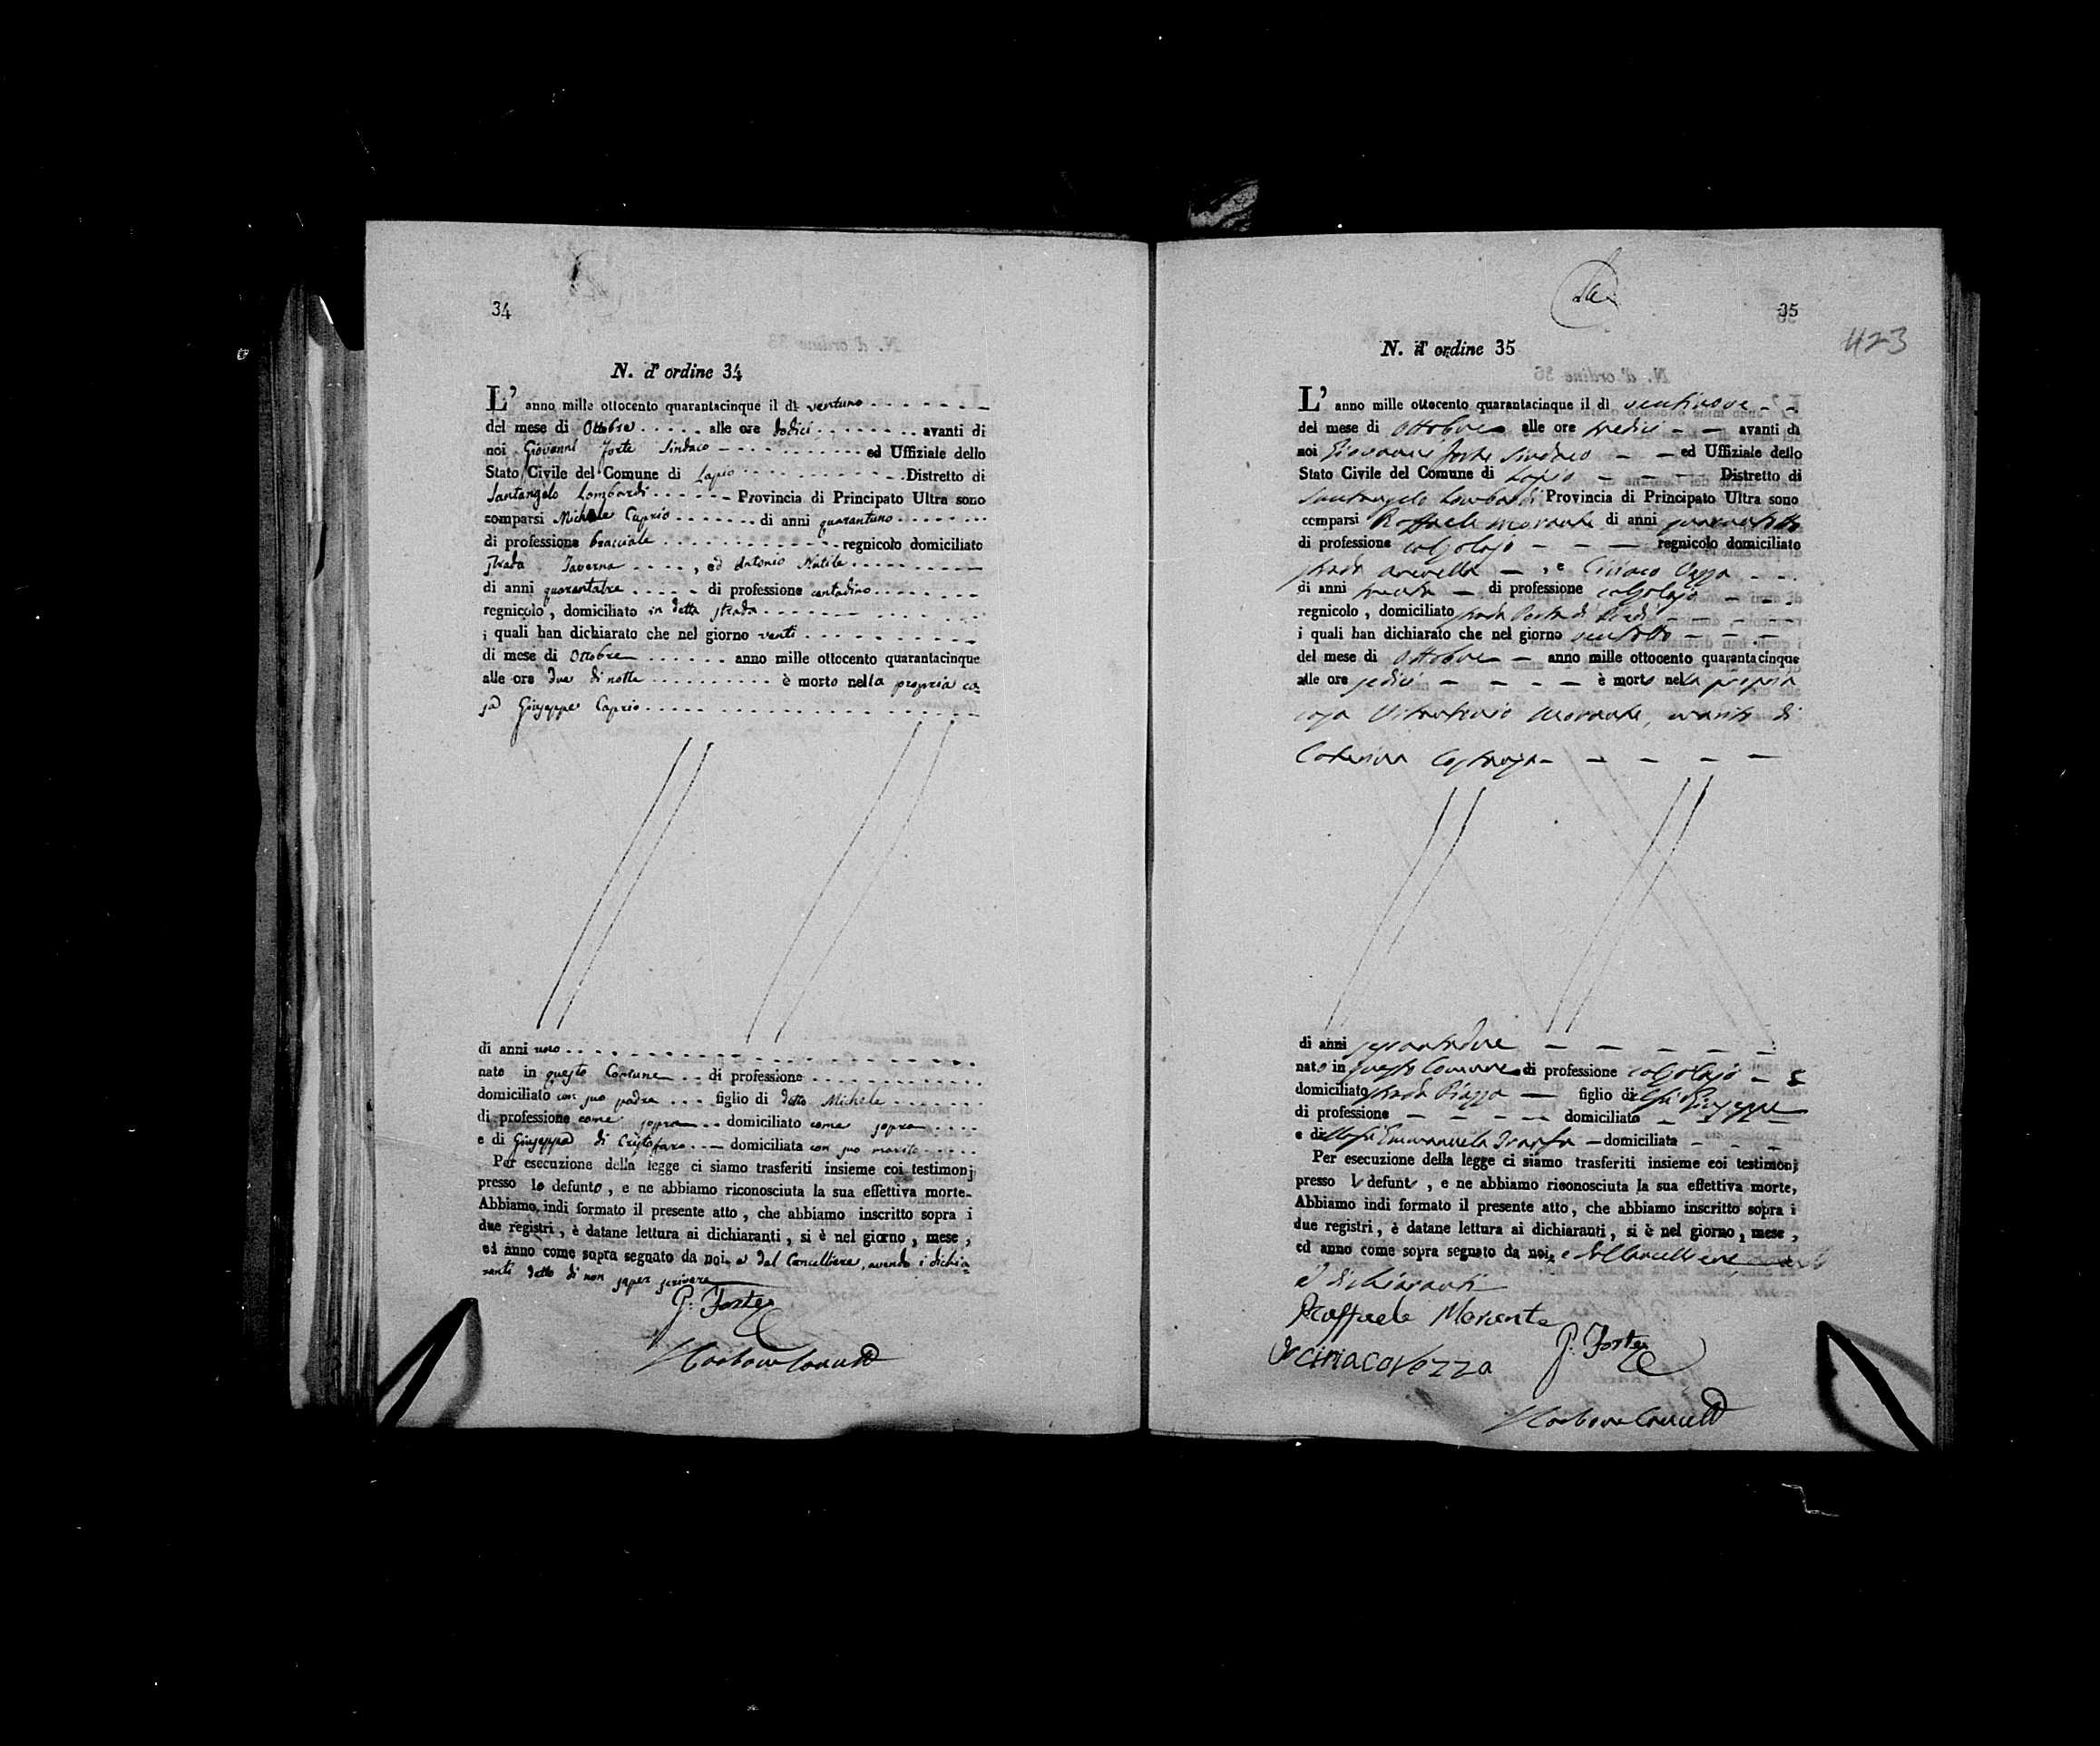 34
N. d' ordine 34
L' anno mille ottocento quarantacinque il dì ventuno
del mese di Ottobre alle ore dodici avanti di
noi Giovanni Forte Sindaco ed Uffiziale dello
Stato Civile del Comune di Lapio Distretto di
Santangelo Lombardi Provincia di Principato Ultra sono
comparsi Michele Caprio di anni quarantuno
di professione bracciale regnicolo domiciliato
strada Taverna, ed Antonio Natile
di anni quarantatre di professione contadino
regnicolo, domiciliato in detta strada
i quali han dichiarato che nel giorno venti
di mese di Ottobre anno mille ottocento quarantacinque
alle ore due di notte è morto nella propria ca-
sa Giuseppe Caprio
di anni uno
nato in questo Comune di professione
domiciliato con suo padre figlio di detto Michele
di professione come sopra domiciliato come sopra
e di Giuseppa di Cristofaro domiciliata con suo marito
Per esecuzione della legge ci siamo trasferiti insieme coi testimonj
presso lo defunto, e ne abbiamo riconosciuta la sua effettiva morte.
Abbiamo indi formato il presente atto, che abbiamo inscritto sopra i
due registri, è datane lettura ai dichiaranti, si è nel giorno, mese,
ed anno come sopra segnato da noi e dal Cancelliere, avendo i dichia-
ranti detto di non saper scrivere
G. Forte
35
423
N. d' ordine 35
L' anno mille ottocento quarantacinque il dì ventinove
del mese di Ottobre alle ore tredici avanti di
noi Giovanni Forte Sindaco ed Uffiziale dello
Stato Civile del Comune di Lapio Distretto di
Santangelo Lombardi Provincia di Principato Ultra sono
comparsi Raffaele Morante di anni quarantotto
di professione calzolajo regnicolo domiciliato
strada, e Ciriaco Vezza
di anni trenta di professione calzolajo
regnicolo, domiciliato strada Porta di
i quali han dichiarato che nel giorno ventotto
del mese di Ottobre anno mille ottocento quarantacinque
alle ore sedici è morto nella propria
casa Vitantonio Morante, marito di
Caterina
di anni sessantadue
nato in questo Comune di professione calzolajo
domiciliato strada Piazza figlio di Giuseppe
di professione domiciliato
e di Emmanuela domiciliata
Per esecuzione della legge ci siamo trasferiti insieme coi testimonj
presso lo defunto, e ne abbiamo riconosciuta la sua effettiva morte,
Abbiamo indi formato il presente atto, che abbiamo inscritto sopra i
due registri, è datane lettura ai dichiaranti, si è nel giorno, mese,
ed anno come sopra segnato da noi, e dal Cancelliere
dichiaranti
Raffaele Morante
G. Forte
ciriaco Vezza